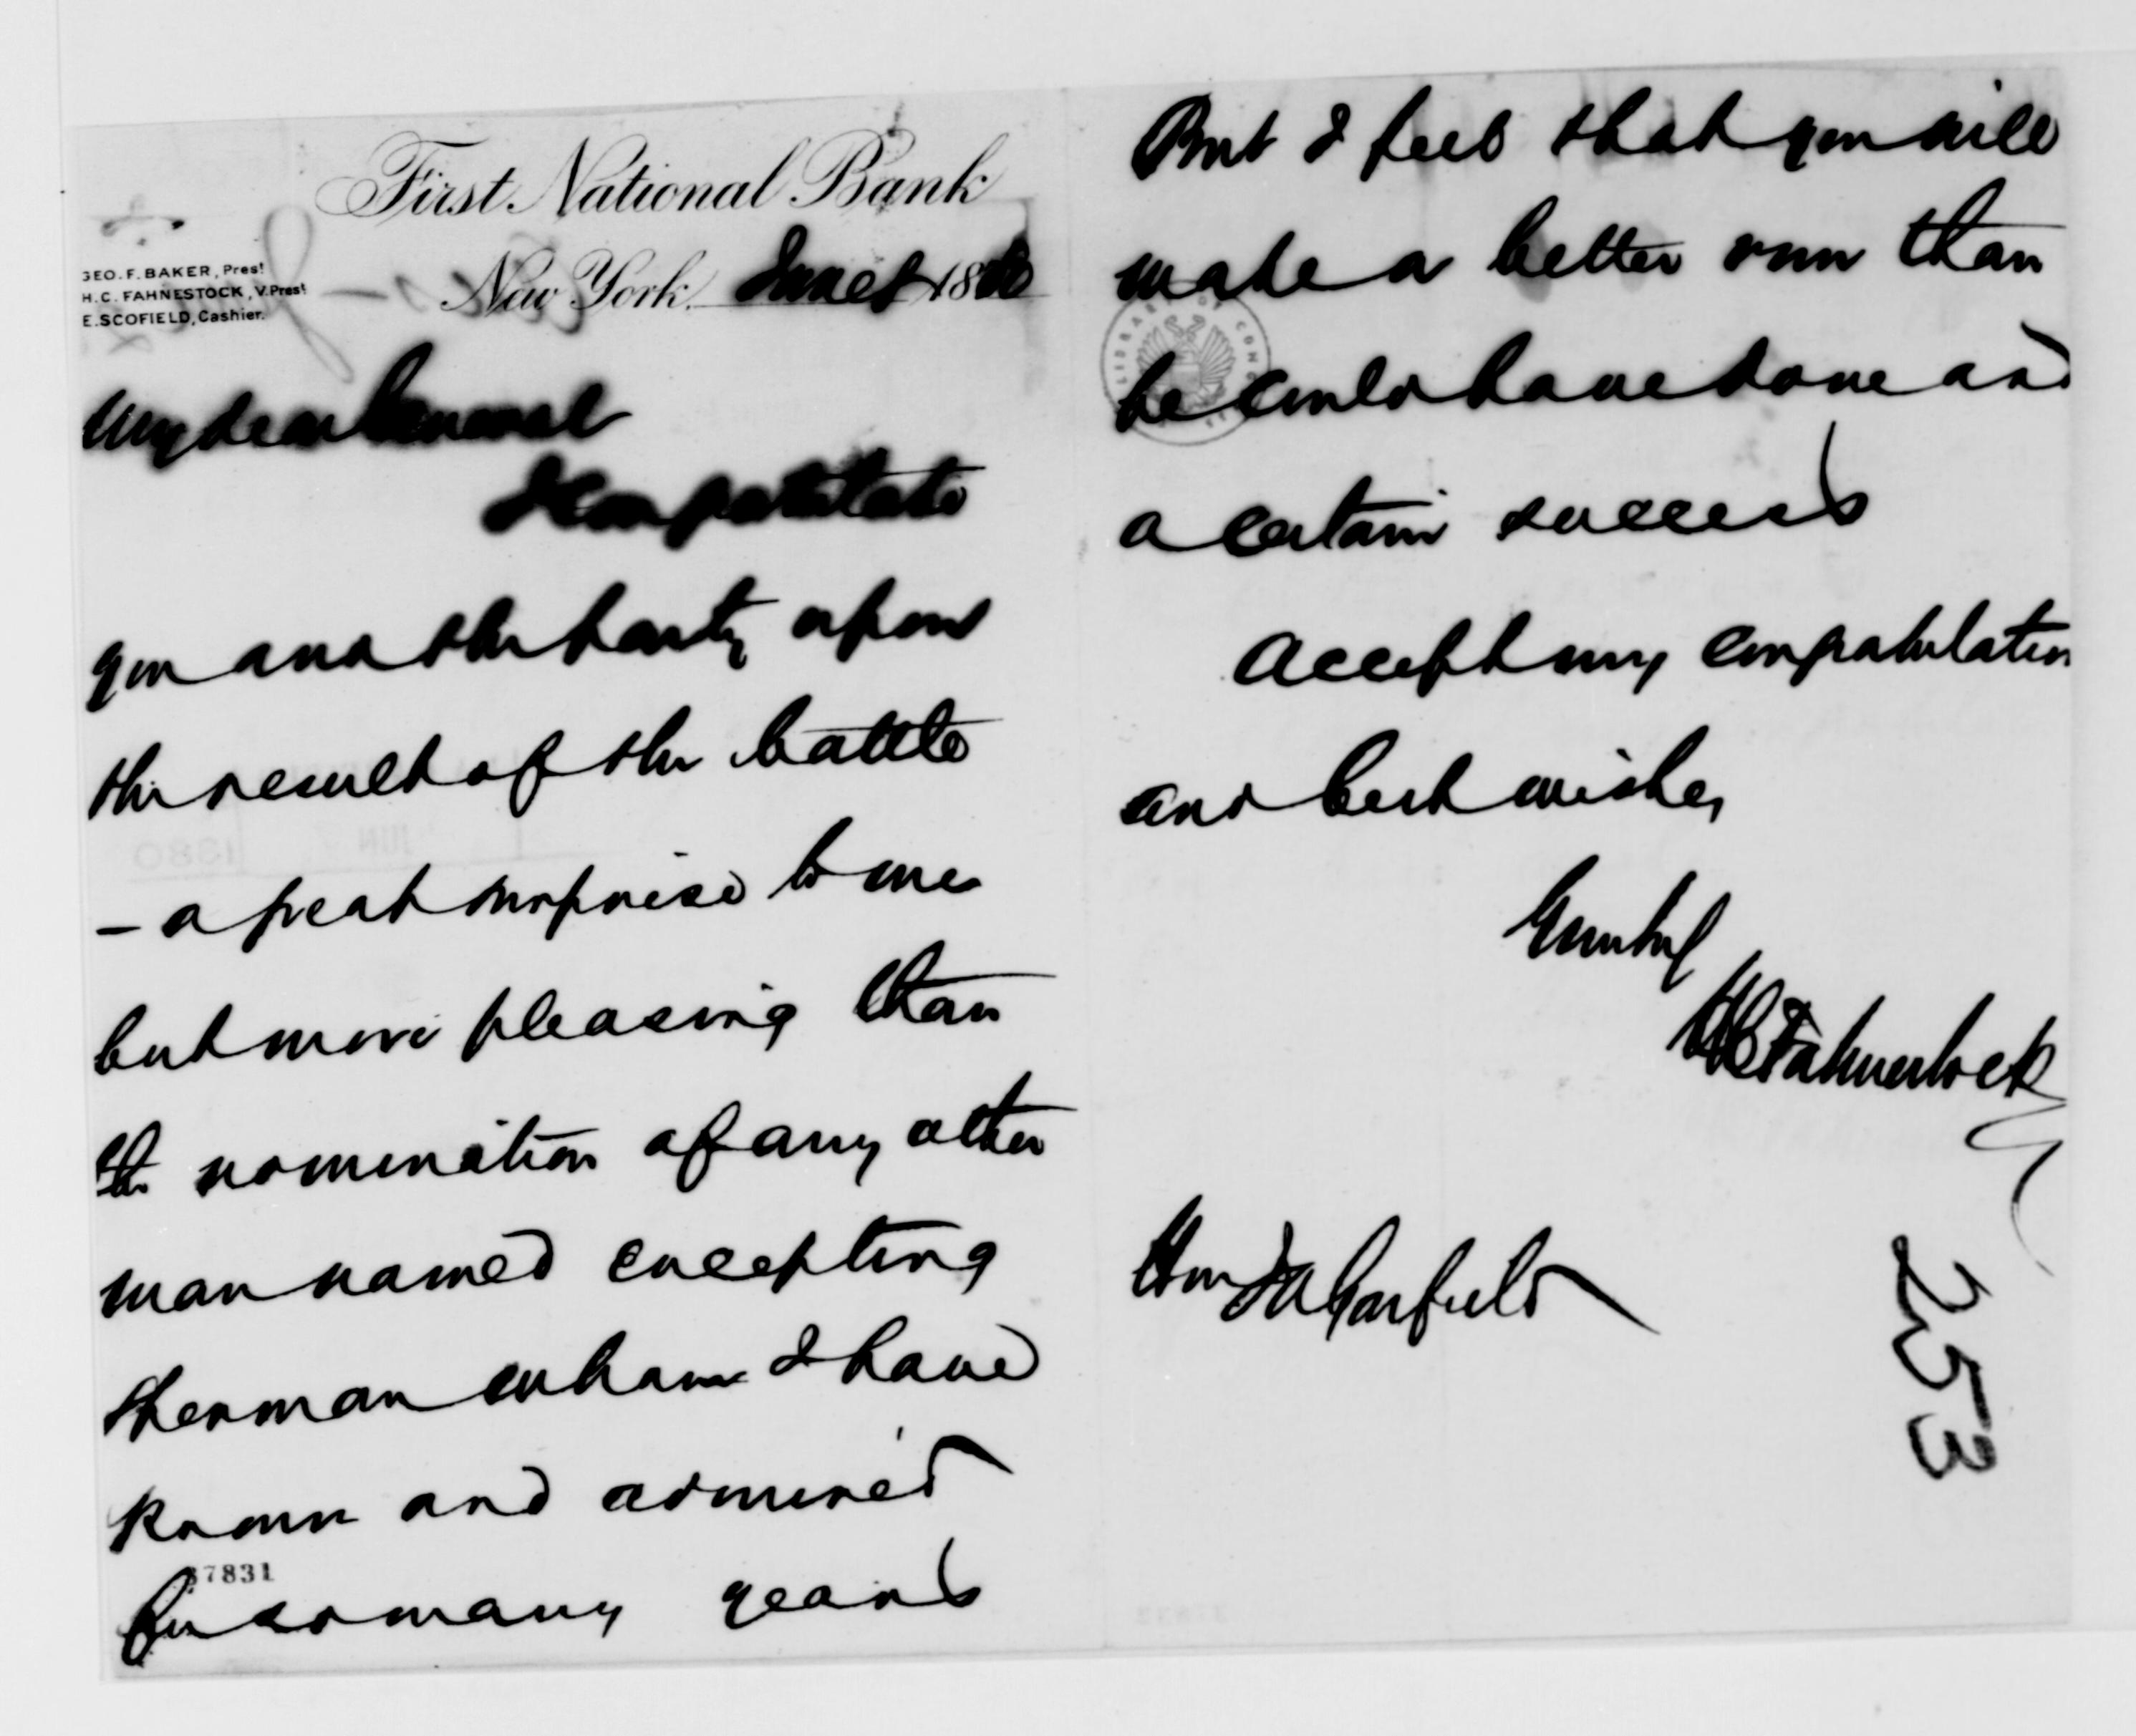 First National Bank
GEO. F. BAKER, Prest
H.C. FAHNESTOCK, V.Prest
E. SCOFIELD, Cashier.
New York, June 1880
My dear General
I congratulate
you and the party upon
the result of the battle
— a great surprise to me
but more pleasing than
the nomination of any other
man named excepting
Sherman whom I have
known and admired
for so many years
37831
But I feel that you will
make a better run than
he could have done and
a certain success
Accept my congratulation
and best wishes
HC Fahnestock
Hon J A Garfield
253
LIBRARY OF CONG
1880 JUN 7